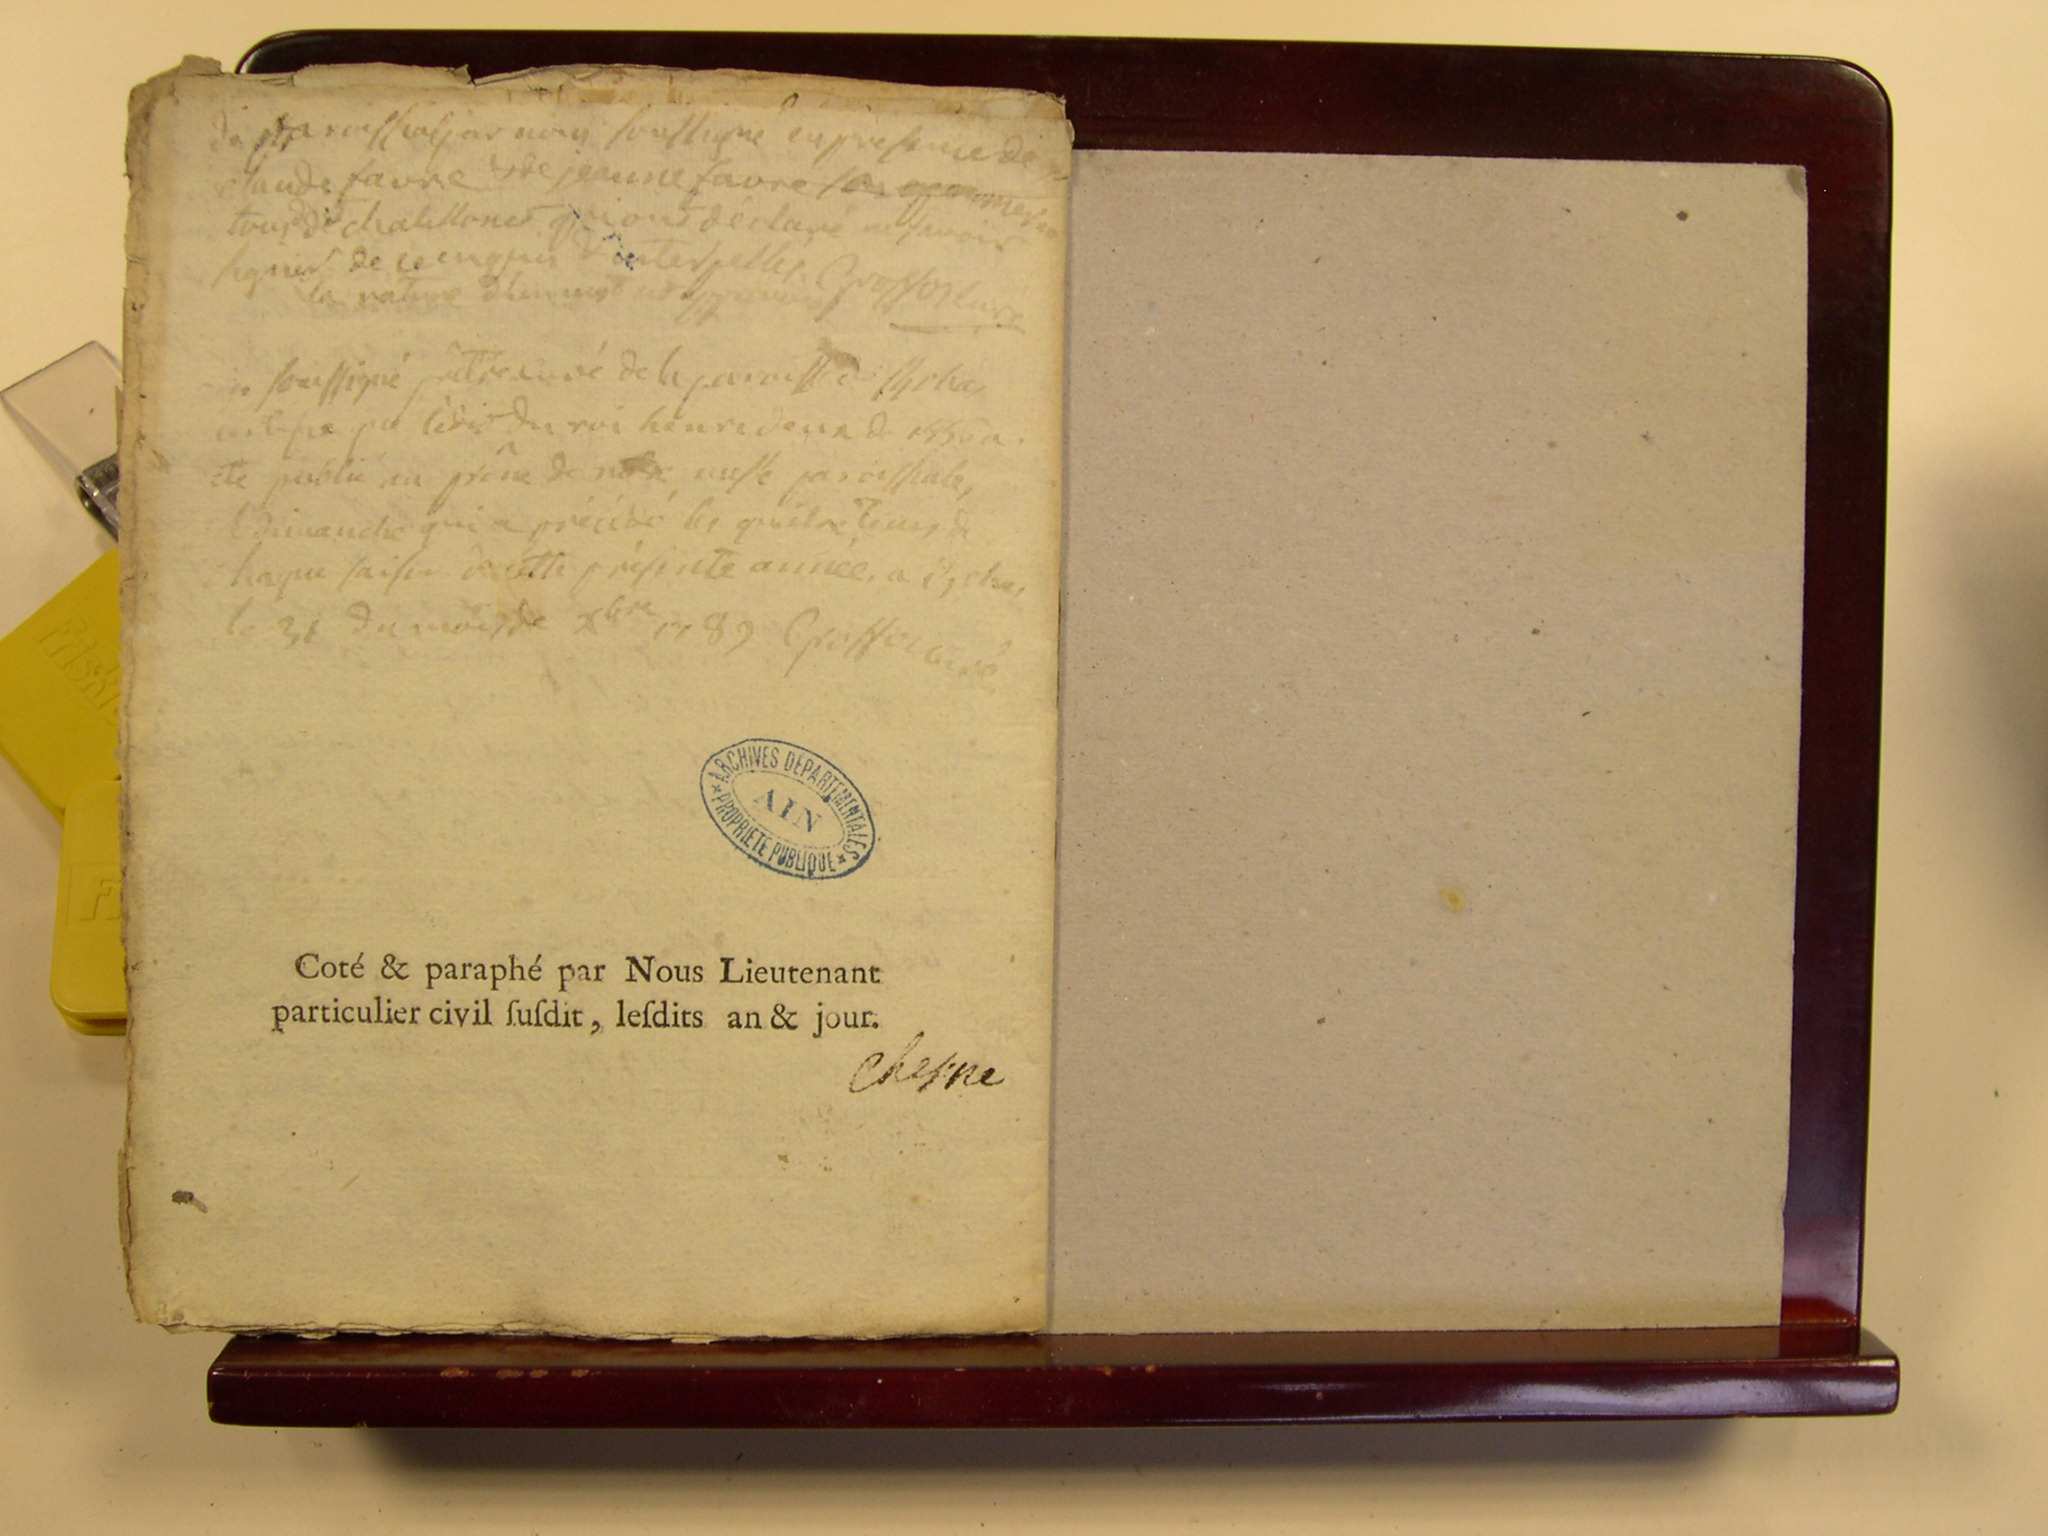 paroissial par nous soussigné en présence de
claude favre & de jeanne favre
tous de chatillonet qui ont déclaré ne savoir
signer de ce enquis & interpellés. Groffon curé
la rature
soussigné prêtre curé de la paroisse d'
que l'édit du roi henri deux de 1556 a
été publié au prône de notre messe paroissiale,
le Dimanche qui a précédé les quatre Tems de
chaque saison de cette présente année, a
le 31 du mois de Xbre 1789 Groffon curé
ARCHIVES DÉPARTEMENTALES
AIN
PROPRIÉTÉ PUBLIQUE
Coté & paraphé par Nous Lieutenant
particulier civil ſuſdit, leſdits an & jour.
Chesne